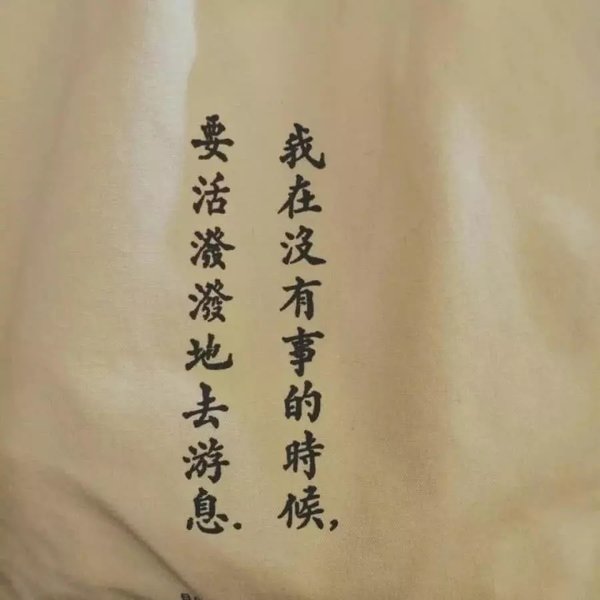 我在沒有事的時候，
要活潑潑地去游息．